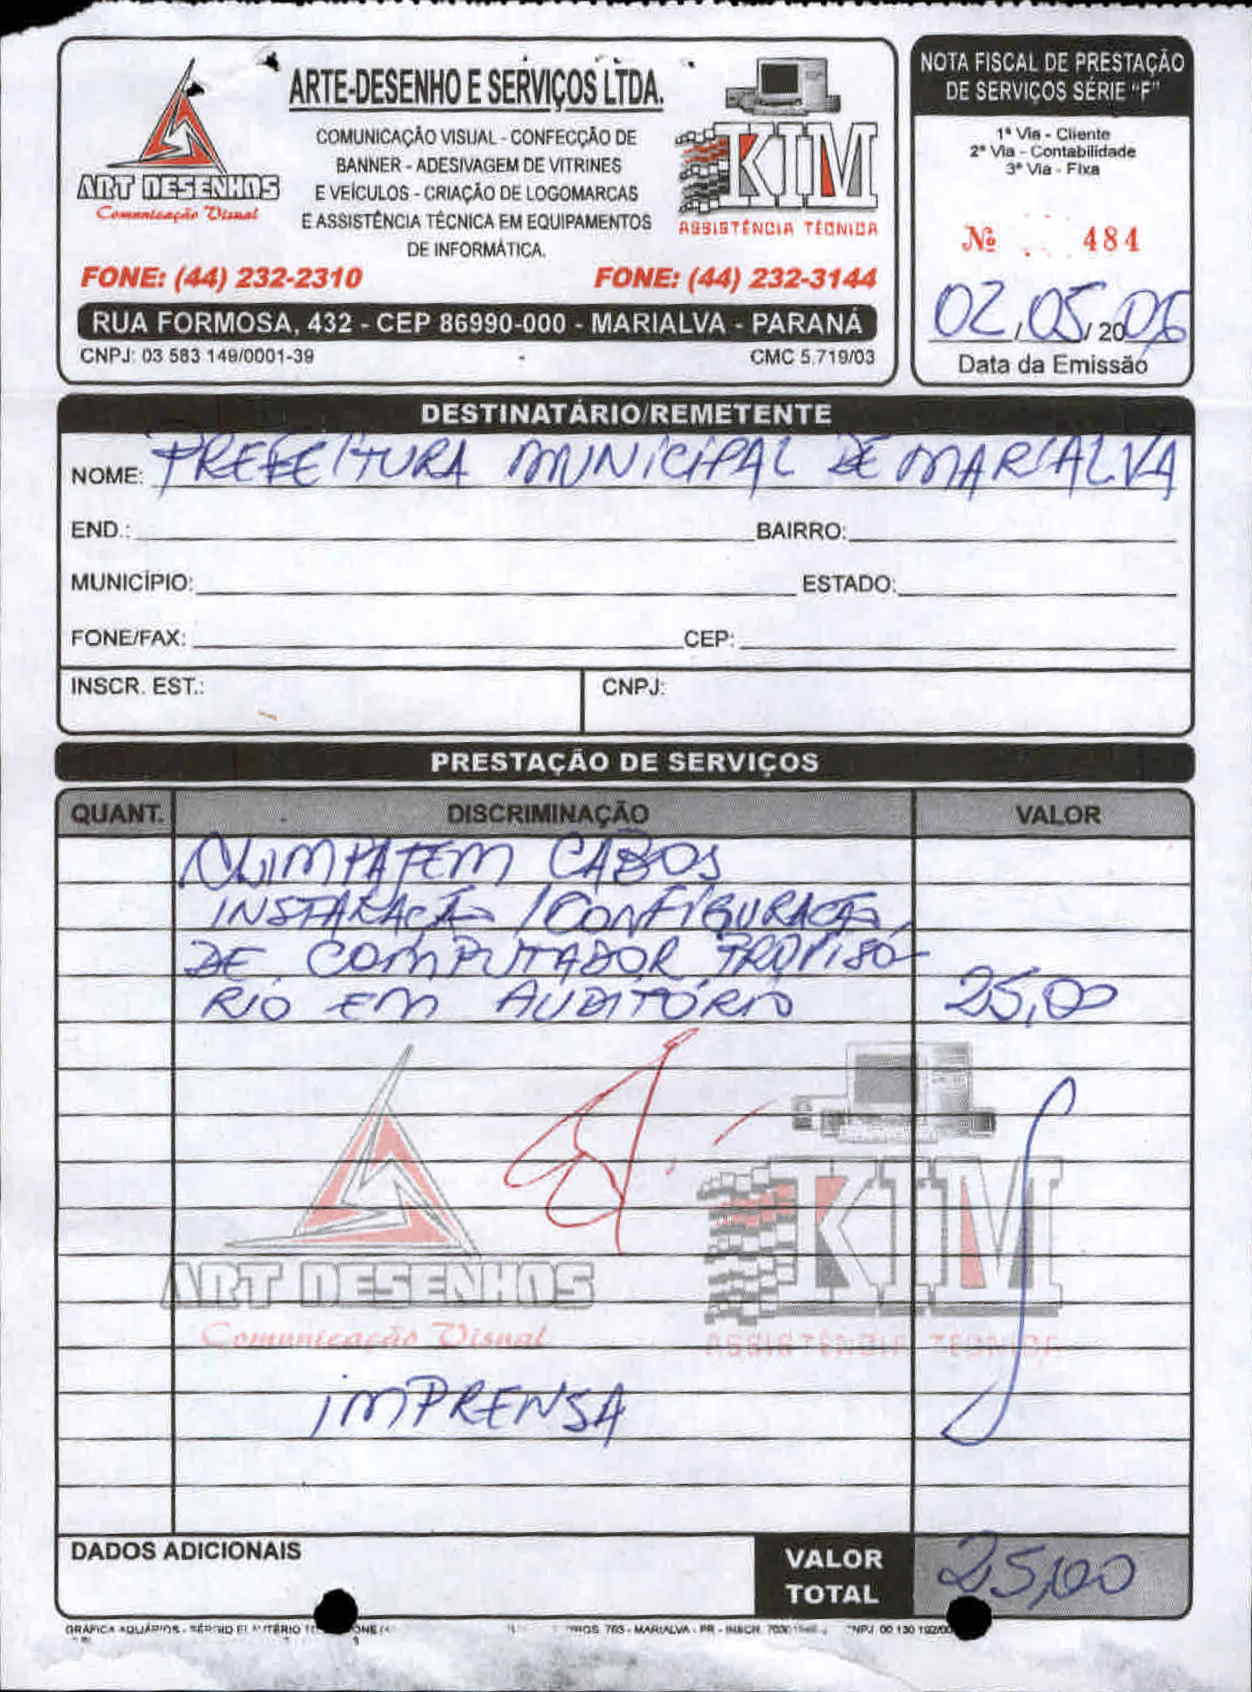 ARTE-DESENHO E SERVIÇOS LTDA.
COMUNICAÇÃO VISUAL - CONFECÇÃO DE
BANNER - ADESIVAGEM DE VITRINES
E VEÍCULOS - CRIAÇÃO DE LOGOMARCAS
E ASSISTÊNCIA TÉCNICA EM EQUIPAMENTOS
DE INFORMÁTICA.
ART DESENHOS
Comunicação Visual
KIM
ASSISTÊNCIA TÉCNICA
FONE: (44) 232-2310
FONE: (44) 232-3144
RUA FORMOSA, 432 - CEP 86990-000 - MARIALVA - PARANÁ
CNPJ: 03 583 149/0001-39
CMC 5.719/03
NOTA FISCAL DE PRESTAÇÃO
DE SERVIÇOS SÉRIE "F"
1ª Via - Cliente
2ª Via - Contabilidade
3ª Via - Fixa
Nº 484
02/05/2006
Data da Emissão
DESTINATÁRIO/REMETENTE
NOME: PREFEITURA MUNICIPAL DE MARIALVA
END.: BAIRRO:
MUNICÍPIO: ESTADO:
FONE/FAX: CEP:
INSCR. EST.: CNPJ:
PRESTAÇÃO DE SERVIÇOS
QUANT. DISCRIMINAÇÃO VALOR
CABOS
INSTALAÇÃO / CONFIGURAÇÃO
DE COMPUTADOR PROVISÓ-
RIO EM AUDITÓRIO 25,00
ART DESENHOS
Comunicação Visual
KIM
ASSISTÊNCIA TÉCNICA
IMPRENSA
DADOS ADICIONAIS
VALOR
TOTAL
25,00
GRÁFICA AQUÁRIOS - SÉRGIO
763 - MARIALVA - PR - INSCR.